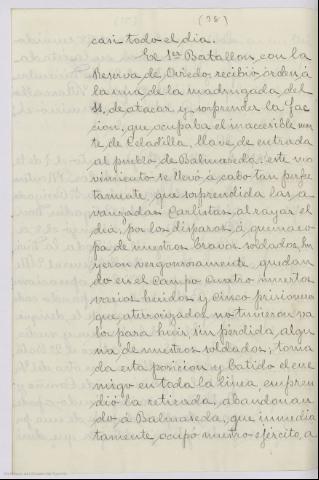 (38)
casi todo el dia.
El 1er Batallon, con la
Reserva de Oviedo, recibió orden á
la una de la madrugada del
11, de atacar y sorprender la fac
cion, que ocupaba el inaccesible mon
te de Celadilla, llave de entrada
al pueblo de Balmaseda: este mo
vimiento se llevó á cabo tan perfec
tamente que sorprendida las a
vanzadas Carlistas, al rayar el
dia, por los disparos á quema ro
pa de nuestros bravos soldados, hu
yeron vergonzosamente, quedan
do en el campo cuatro muertos
varios heridos y cinco prisioneros
que aterrorizados no tuvieron va
lor para huir, sin pérdida algu
na de nuestros soldados; toma
da esta posicion y batido el ene
migo en toda la linea, empren
dió la retirada, abandonan
do á Balmaseda, que inmedia
tamente, ocupó nuestro ejército, a